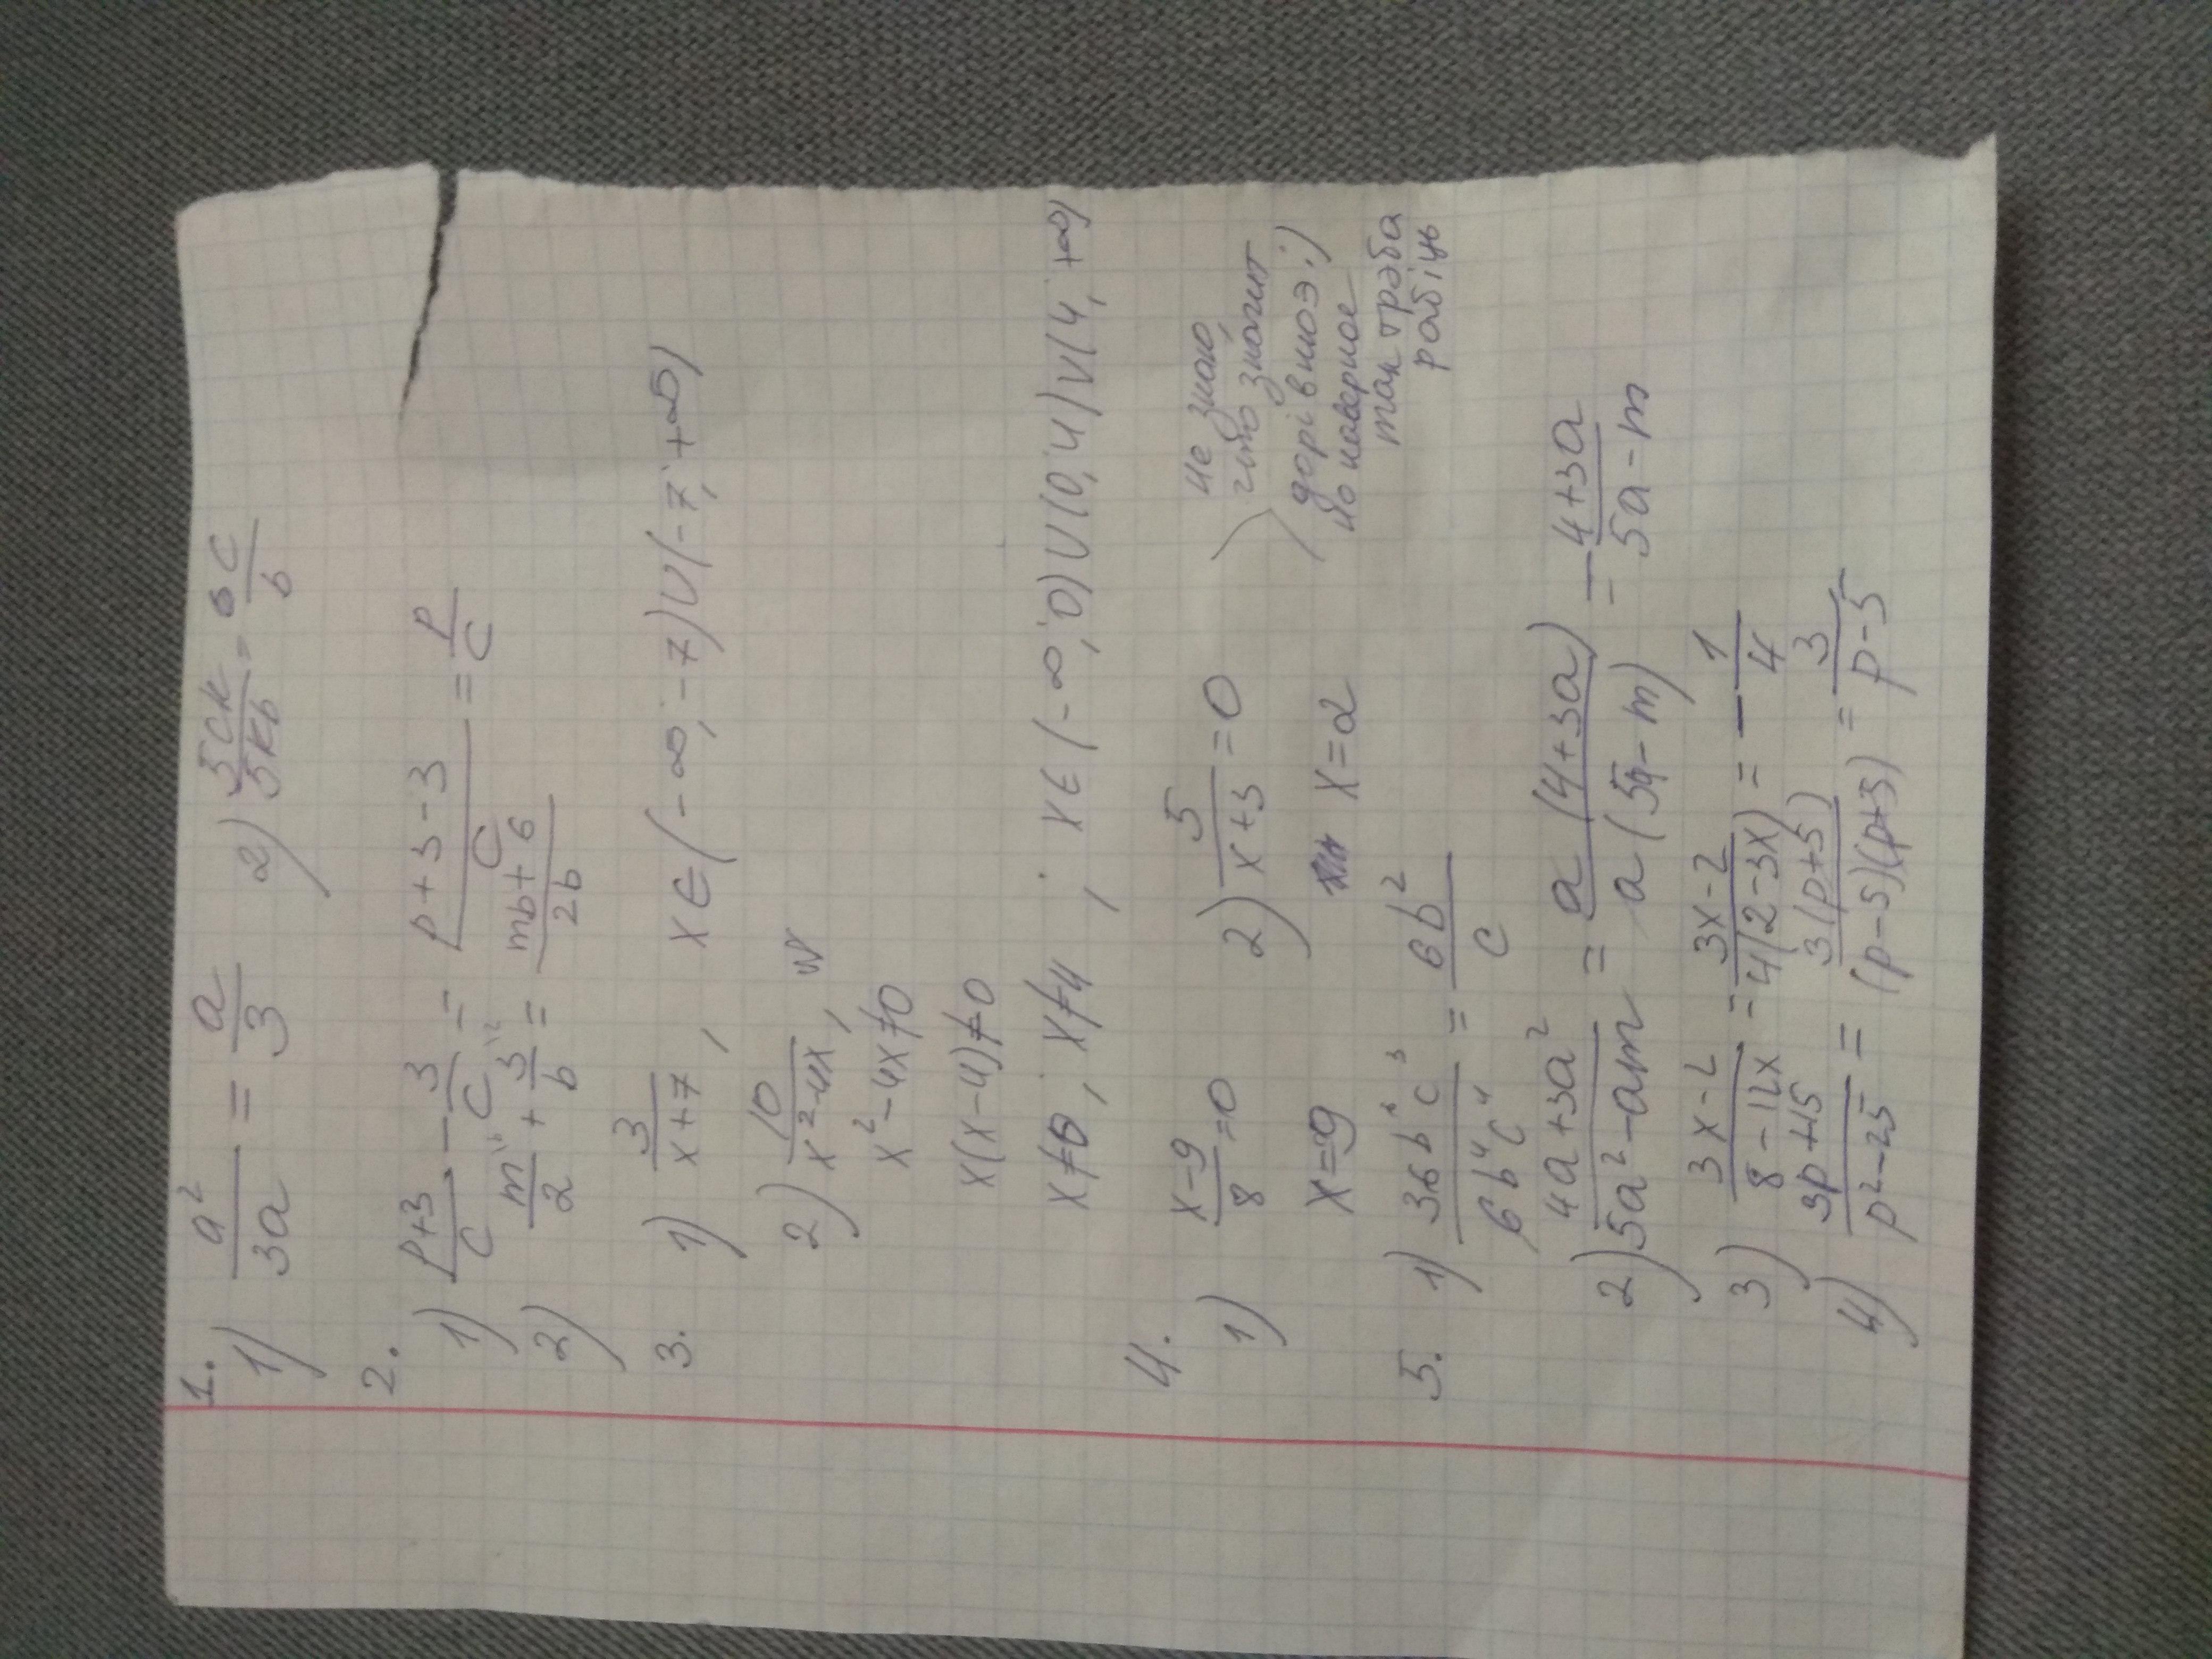 1.
1) a²/3a = a/3   2) 5ck/5kb = c/b
2.
1) p+3/c - 3/c = p+3-3/c = p/c
2) m/2 + 3/b = mb+6/2b
3.
1) 3/x+7 , x∈(-∞;-7)∪(-7;+∞)
2) 10/x²-4x ,
x²-4x≠0
x(x-4)≠0
x≠0; x≠4 , x∈(-∞;0)∪(0;4)∪(4;+∞)
4.
1) x-9/8=0   2) 5/x+3=0
x=9   x=2
не знаю,
что значит
дорівнюэ :)
но наверное
так трэба
рабіць
5. 1) 36b⁶c³/6b⁴c⁴ = 6b²/c
2) 4a+3a²/5a²-am = a(4+3a)/a(5a-m) = 4+3a/5a-m
3) 3x-2/8-12x = 3x-2/4(2-3x) = -1/4
4) 3p+15/p²-25 = 3(p+5)/(p-5)(p+3) = 3/p-5